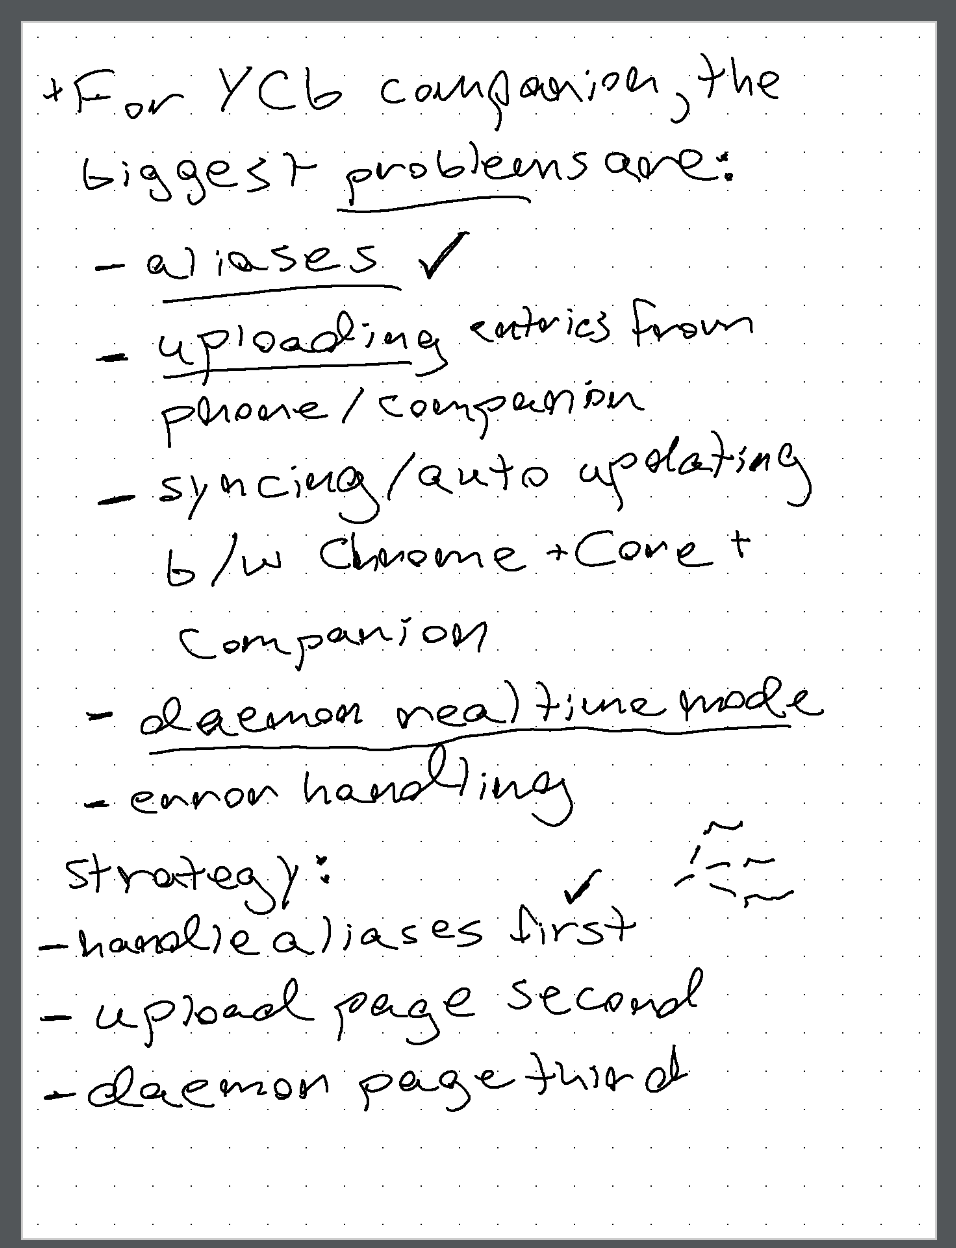 + For YCb companion, the
biggest problems are:
- aliases ✓
- uploading entries from
phone/companion
- syncing/auto updating
b/w Chrome + Core +
companion
- daemon realtime mode
- error handling
strategy:
- handle aliases first ✓
- upload page second
- daemon page third